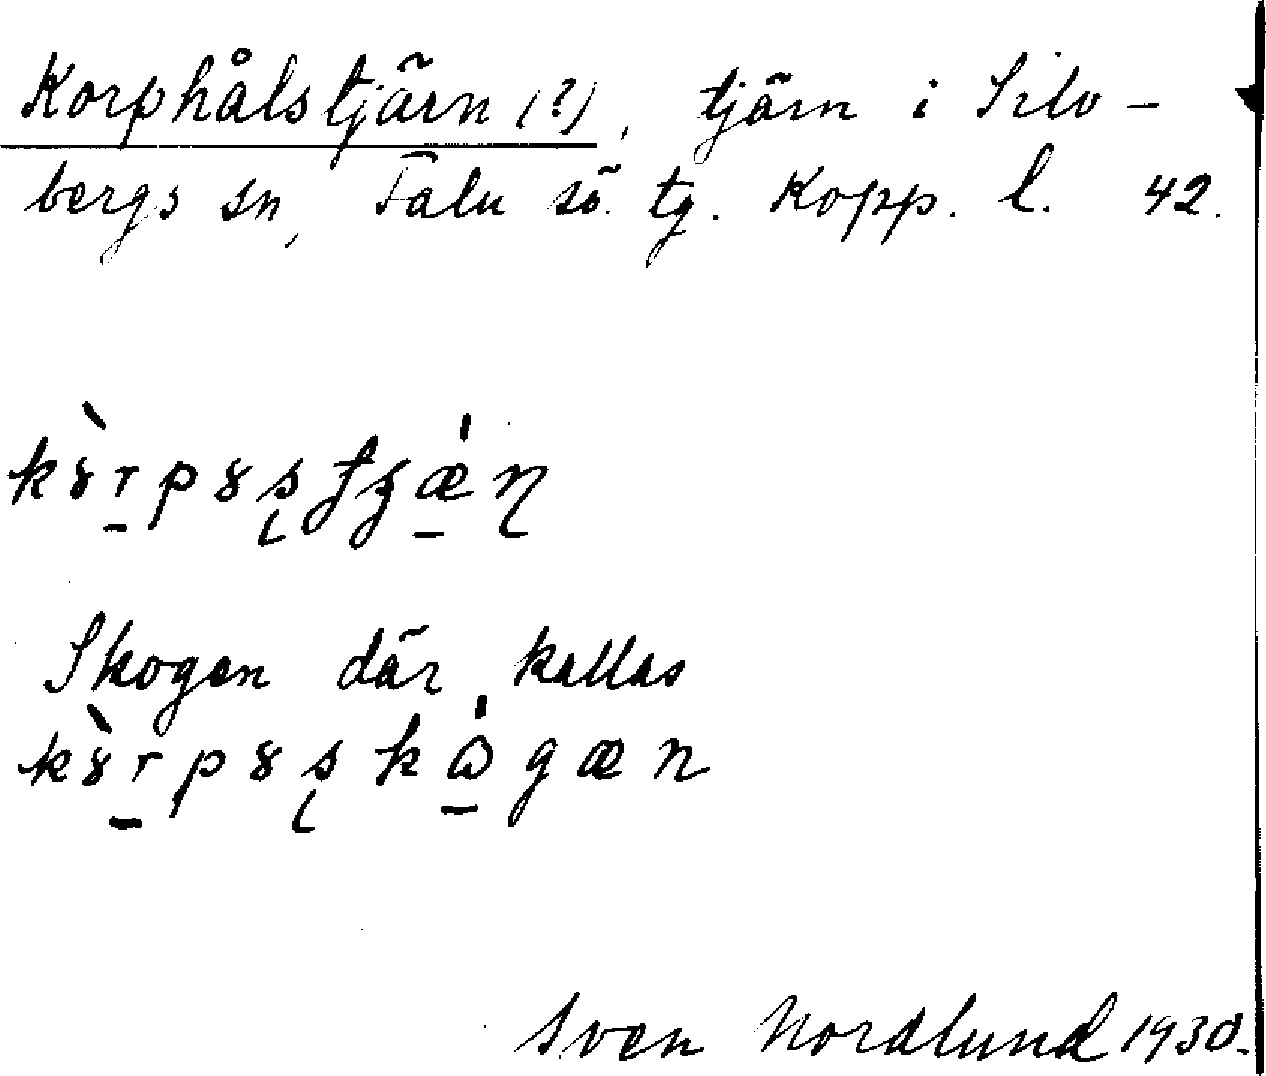 Korphålstjärn (?), tjärn i Silv-
bergs sn, Falu sö. tg. Kopp. l. 42.
kɤ̀r̠pɤʂʈʂǽ̠ɳ
Skogen där kallas
kɤ̀r̠pɤʂkɷ̠́gæn
Sven Nordlund 1930.